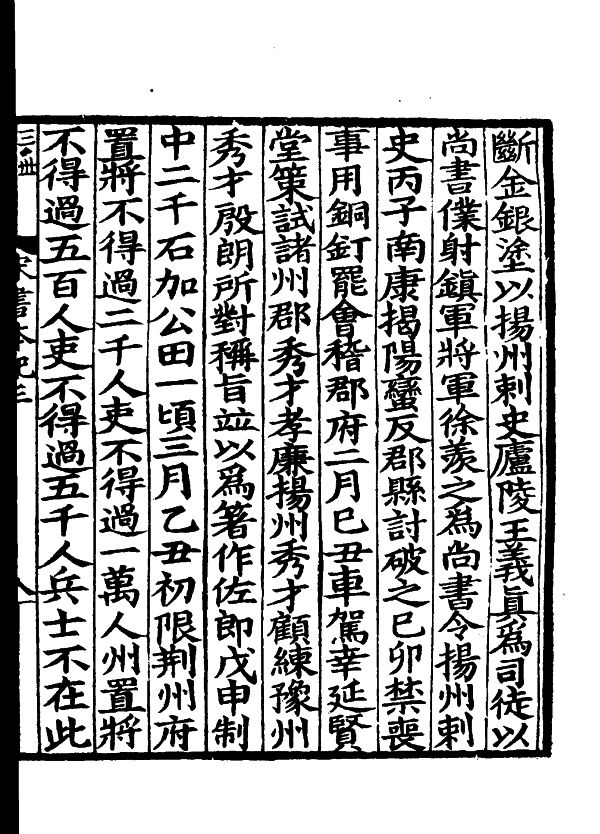 斷金銀塗以揚州刺史廬陵王義眞爲司徒以
尚書僕射鎭軍將軍徐羨之爲尚書令揚州刺
史丙子南康揭陽蠻反郡縣討破之已卯禁喪
事用銅釘罷會稽郡府二月巳丑車駕幸延賢
堂策試諸州郡秀才孝廉揚州秀才顧練豫州
秀才殷朗所對稱旨竝以爲箸作佐郎戊申制
中二千石加公田一頃三月乙丑初限荆州府
置將不得過二千人吏不得過一萬人州置將
不得過五百人吏不得過五千人兵士不在此
宋書本紀三